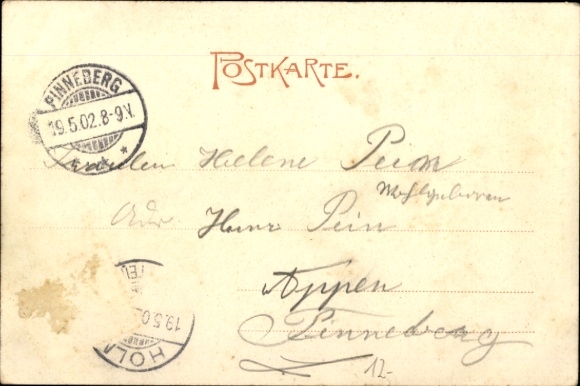 POSTKARTE.
PINNEBERG
19.5.02.8-9V.
Fräulein Helene Pein
Wohlgeboren
Adr. Herrn Pein
Appen
Pinneberg
12-
19.5.0
HOL